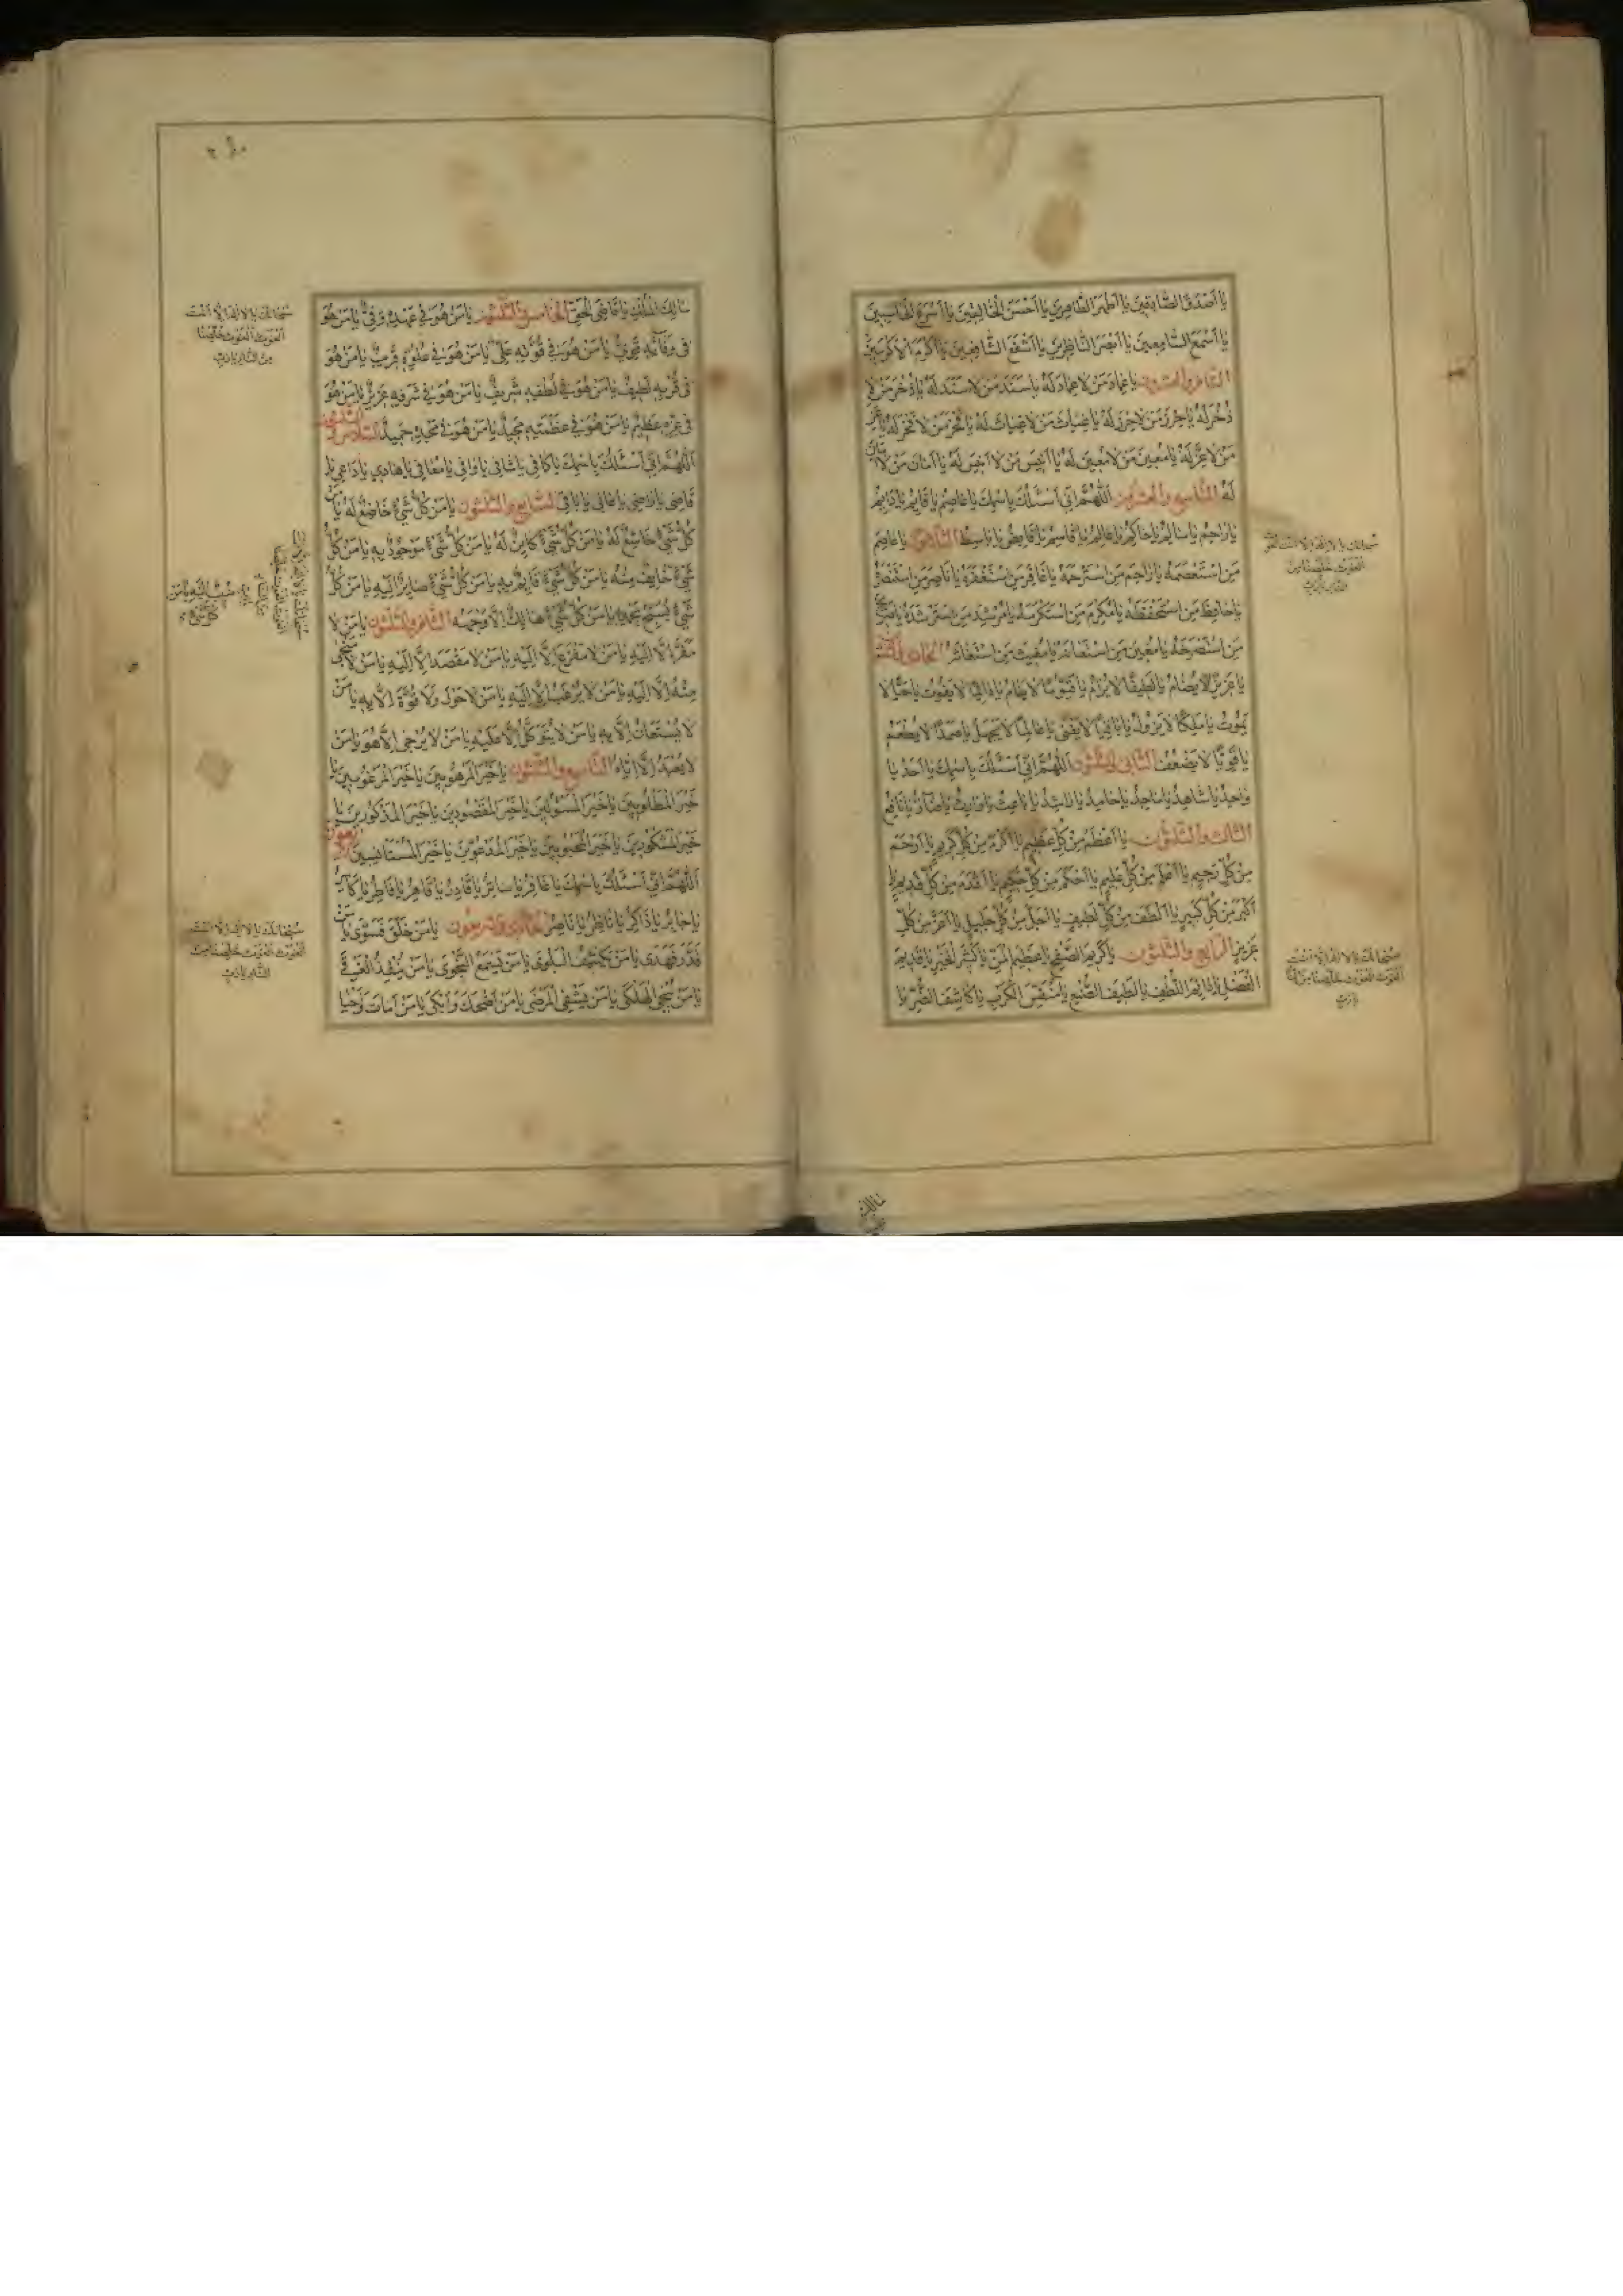 يا اَصْدَقَ الصّادِقينَ يا اَطْهَرَ الطّاهِرينَ يا اَحْسَنَ الْخالِقينَ يا اَسْرَعَ الْحاسِبينَ
يا اَسْمَعَ السّامِعينَ يا اَبْصَرَ النّاظِرينَ يا اَشْفَعَ الشّافِعينَ يا اَكْرَمَ الْاَكْرَمينَ
الثّامن والعشرون يا عِمادَ مَنْ لا عِمادَ لَهُ يا سَنَدَ مَنْ لا سَنَدَ لَهُ يا ذُخْرَ مَنْ لا
ذُخْرَ لَهُ يا حِرْزَ مَنْ لا حِرْزَ لَهُ يا غِياثَ مَنْ لا غِياثَ لَهُ يا فَخْرَ مَنْ لا فَخْرَ لَهُ يا عِزَّ
مَنْ لا عِزَّ لَهُ يا مُعينَ مَنْ لا مُعينَ لَهُ يا اَنيسَ مَنْ لا اَنيسَ لَهُ يا اَمانَ مَنْ لا اَمانَ
لَهُ التّاسع والعشرون اَللّهُمَّ اِنّي اَسْئَلُكَ بِاسْمِكَ يا عاصِمُ يا قائِمُ يا دائِمُ
يا راحِمُ يا سالِمُ يا حاكِمُ يا عالِمُ يا قاسِمُ يا قابِضُ يا باسِطُ الثّلاثون يا عاصِمَ
مَنِ اسْتَعْصَمَهُ يا راحِمَ مَنِ اسْتَرْحَمَهُ يا غافِرَ مَنِ اسْتَغْفَرَهُ يا ناصِرَ مَنِ اسْتَنْصَرَهُ
يا حافِظَ مَنِ اسْتَحْفَظَهُ يا مُكْرِمَ مَنِ اسْتَكْرَمَهُ يا مُرْشِدَ مَنِ اسْتَرْشَدَهُ يا صَريخَ
مَنِ اسْتَصْرَخَهُ يا مُعينَ مَنِ اسْتَعانَهُ يا مُغيثَ مَنِ اسْتَغاثَهُ الحادي والثلثون
يا عَزيزًا لا يُضامُ يا لَطيفًا لا يُرامُ يا قَيُّومًا لا يَنامُ يا دائِمًا لا يَفُوتُ يا حَيًّا لا
يَمُوتُ يا مَلِكًا لا يَزُولُ يا باقِيًا لا يَفْنى يا عالِمًا لا يَجْهَلُ يا صَمَدًا لا يُطْعَمُ
يا قَوِيًّا لا يَضْعُفُ الثّاني والثلثون اَللّهُمَّ اِنّي اَسْئَلُكَ بِاسْمِكَ يا اَحَدُ يا
واحِدُ يا شاهِدُ يا ماجِدُ يا حامِدُ يا راشِدُ يا باعِثُ يا وارِثُ يا ضارُّ يا نافِعُ
الثّالث والثّلثون يا اَعْظَمَ مِنْ كُلِّ عَظيمٍ يا اَكْرَمَ مِنْ كُلِّ كَريمٍ يا اَرْحَمَ
مِنْ كُلِّ رَحيمٍ يا اَعْلَمَ مِنْ كُلِّ عَليمٍ يا اَحْكَمَ مِنْ كُلِّ حَكيمٍ يا اَقْدَمَ مِنْ كُلِّ قَديمٍ يا
اَكْبَرَ مِنْ كُلِّ كَبيرٍ يا اَلْطَفَ مِنْ كُلِّ لَطيفٍ يا اَجَلَّ مِنْ كُلِّ جَليلٍ يا اَعَزَّ مِنْ كُلِّ
عَزيزٍ الرّابع والثّلثون يا كَريمَ الصَّفْحِ يا عَظيمَ الْمَنِّ يا كَثيرَ الْخَيْرِ يا قَديمَ
الْفَضْلِ يا دائِمَ اللُّطْفِ يا لَطيفَ الصُّنْعِ يا مُنَفِّسَ الْكَرْبِ يا كاشِفَ الضُّرِّ يا
سبحانك يا لا اله الا انت الغوث
الغوث خلصنا من
النار يا رب
سبحانك يا لا اله الا انت
الغوث الغوث خلصنا من النار
يا رب
مالك
مالِكَ الْمُلْكِ يا قاضِيَ الْحَقِّ الخامس والثلثون يا مَنْ هُوَ في عَهْدِهِ وَفِيٌّ يا مَنْ هُوَ
في وَفائِهِ قَوِيٌّ يا مَنْ هُوَ في قُوَّتِهِ عَلِيٌّ يا مَنْ هُوَ في عُلُوِّهِ قَريبٌ يا مَنْ هُوَ
في قُرْبِهِ لَطيفٌ يا مَنْ هُوَ في لُطْفِهِ شَريفٌ يا مَنْ هُوَ في شَرَفِهِ عَزيزٌ يا مَنْ هُوَ
في عِزِّهِ عَظيمٌ يا مَنْ هُوَ في عَظَمَتِهِ مَجيدٌ يا مَنْ هُوَ في مَجْدِهِ حَميدٌ السّادس والثلثون
اَللّهُمَّ اِنّي اَسْئَلُكَ بِاسْمِكَ يا كافي يا شافي يا وافي يا مُعافي يا هادي يا داعي يا
قاضي يا راضي يا عالي يا باقي السّابع والثّلثون يا مَنْ كُلُّ شَيْءٍ خاضِعٌ لَهُ يا مَنْ
كُلُّ شَيْءٍ خاشِعٌ لَهُ يا مَنْ كُلُّ شَيْءٍ كائِنٌ لَهُ يا مَنْ كُلُّ شَيْءٍ مَوْجُودٌ بِهِ يا مَنْ كُلُّ
شَيْءٍ خائِفٌ مِنْهُ يا مَنْ كُلُّ شَيْءٍ قائِمٌ بِهِ يا مَنْ كُلُّ شَيْءٍ صائِرٌ اِلَيْهِ يا مَنْ كُلُّ
شَيْءٍ يُسَبِّحُ بِحَمْدِهِ يا مَنْ كُلُّ شَيْءٍ هالِكٌ اِلّا وَجْهَهُ الثّامن والثّلثون يا مَنْ لا
مَفَرَّ اِلّا اِلَيْهِ يا مَنْ لا مَفْزَعَ اِلّا اِلَيْهِ يا مَنْ لا مَقْصَدَ اِلّا اِلَيْهِ يا مَنْ لا مَنْجى
مِنْهُ اِلّا اِلَيْهِ يا مَنْ لا يُرْغَبُ اِلّا اِلَيْهِ يا مَنْ لا حَوْلَ وَلا قُوَّةَ اِلّا بِهِ يا مَنْ
لا يُسْتَعانُ اِلّا بِهِ يا مَنْ لا يُتَوَكَّلُ اِلّا عَلَيْهِ يا مَنْ لا يُرْجى اِلّا هُوَ يا مَنْ
لا يُعْبَدُ اِلّا اِيّاهُ التّاسع والثّلثون يا خَيْرَ الْمَرْهُوبينَ يا خَيْرَ الْمَرْغُوبينَ يا
خَيْرَ الْمَطْلُوبينَ يا خَيْرَ الْمَسْئُولينَ يا خَيْرَ الْمَقْصُودينَ يا خَيْرَ الْمَذْكُورينَ يا
خَيْرَ الْمَشْكُورينَ يا خَيْرَ الْمَحْبُوبينَ يا خَيْرَ الْمَدْعُوّينَ يا خَيْرَ الْمُسْتَأْنِسينَ الاربعون
اَللّهُمَّ اِنّي اَسْئَلُكَ بِاسْمِكَ يا غافِرُ يا ساتِرُ يا قادِرُ يا قاهِرُ يا فاطِرُ يا كاسِرُ
يا جابِرُ يا ذاكِرُ يا ناظِرُ يا ناصِرُ الحادي والاربعون يا مَنْ خَلَقَ فَسَوّى يا مَنْ
قَدَّرَ فَهَدى يا مَنْ يَكْشِفُ الْبَلْوى يا مَنْ يَسْمَعُ النَّجْوى يا مَنْ يُنْقِذُ الْغَرْقى
يا مَنْ يُنْجِي الْهَلْكى يا مَنْ يَشْفِي الْمَرْضى يا مَنْ اَضْحَكَ وَاَبْكى يا مَنْ اَماتَ وَاَحْيا
سبحانك يا لا اله الا انت
الغوث الغوث خلصنا
من النار يا رب
سبحانك يا لا اله الا انت
الغوث الغوث خلصنا
من النار
منيب اليه يا من
كل شيء
سبحانك يا لا اله الا انت
الغوث الغوث خلصنا من
النار يا رب